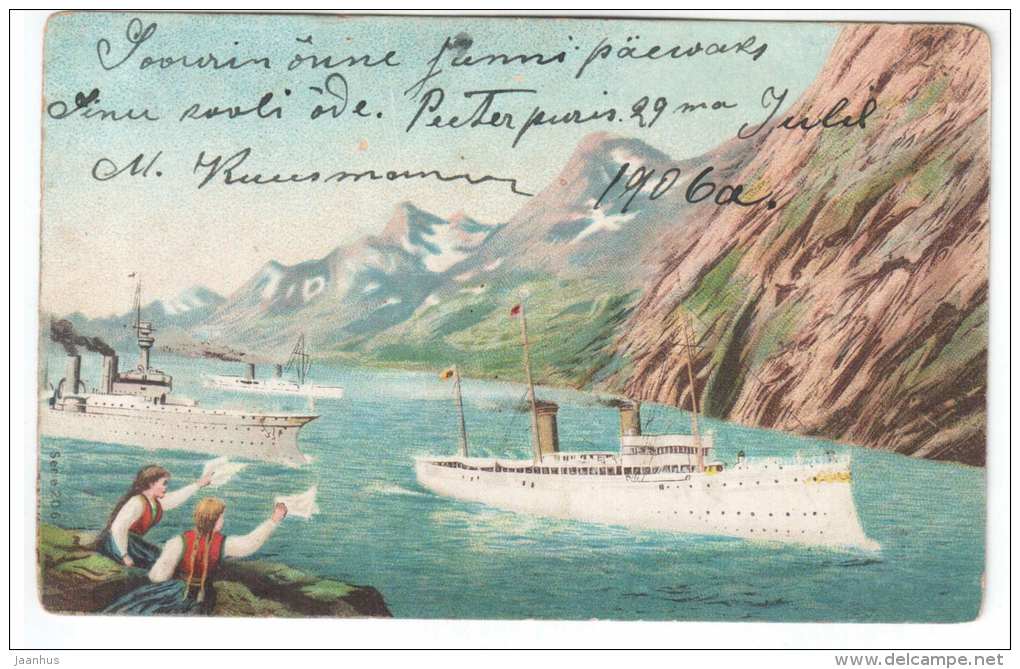 Soowin õnne sünni päewaks
Sinu sooli õde. Peeterpuris. 29 ma Julil
M. Kuusmann
1906a.
Serie 216
jaanhus
delcampe.net